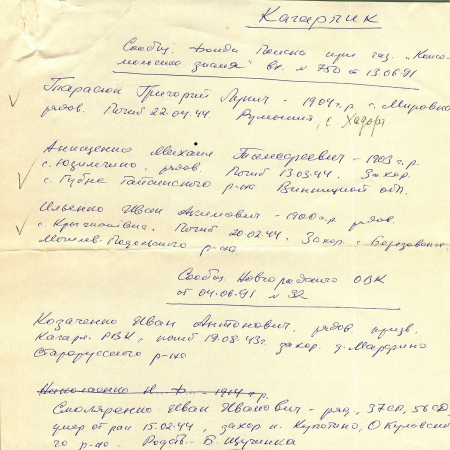 Кагарлик
Сообщ. Фонда Поиска при газ. „Комсо-
мольское знамя" вх. № 750 от 13.06.91
Тарасюк Григорий Лукич - 1904 г.р. с. Мировка
рядов. Погиб 22.04.44 Румыния, с. Хадора
Анищенко Михаил Тимофеевич - 1903 г.р.
с. Юзимчино, рядов. Погиб 13.03.44. Захор.
с. Губна Гайсинского р-на Винницкой обл.
Ильенко Иван Акимович - 1900 г.р. рядов.
Погиб 20.02.44. Захор. с. Березовское
Могилев-Подольского р-на
Сообщ. Новгородского ОВК
от 04.06.91 № 92
Козаченко Иван Антонович, рядов. призв.
Кагарл. РВК, погиб 19.08.43г. захор. д. Марфино
Старорусского р-на
Николаенко И. Ф. - 1914 г.р.
Смоляренко Иван Иванович - ряд., 37СП, 56СД,
умер от ран 15.02.44, захор. н. Окуловско-
го р-на. Родств. - Б. Щучинка